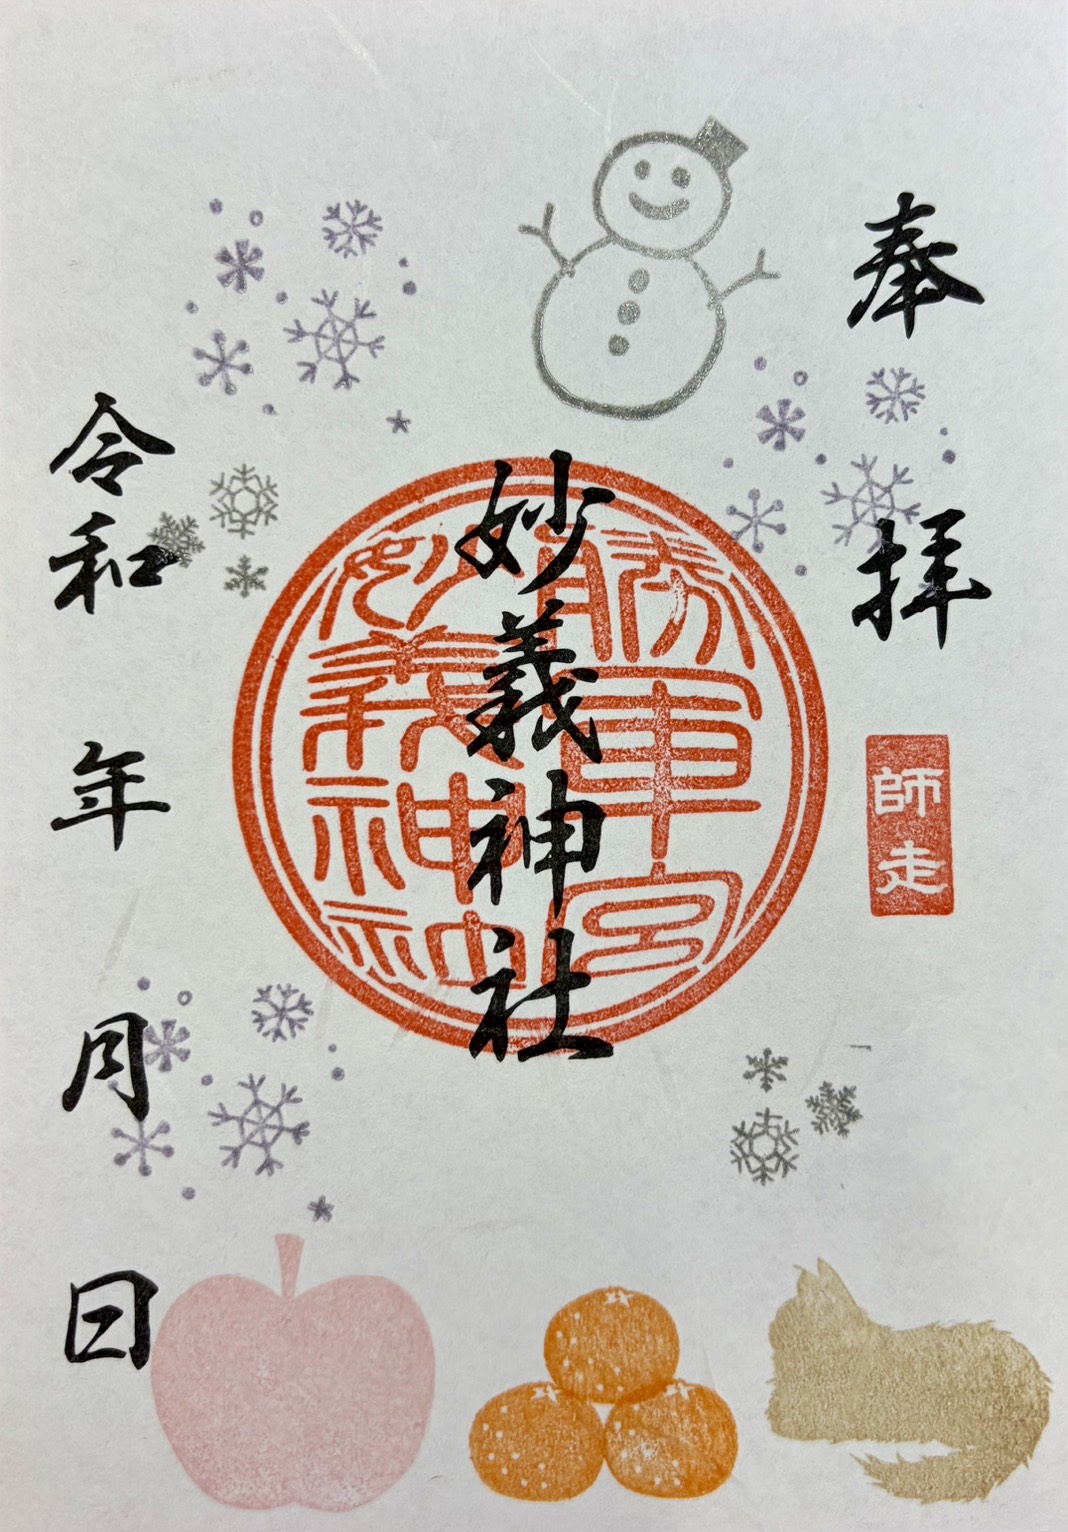 奉拝
師走
妙義神社
勝軍宮
妙義神社
令和 年 月 日